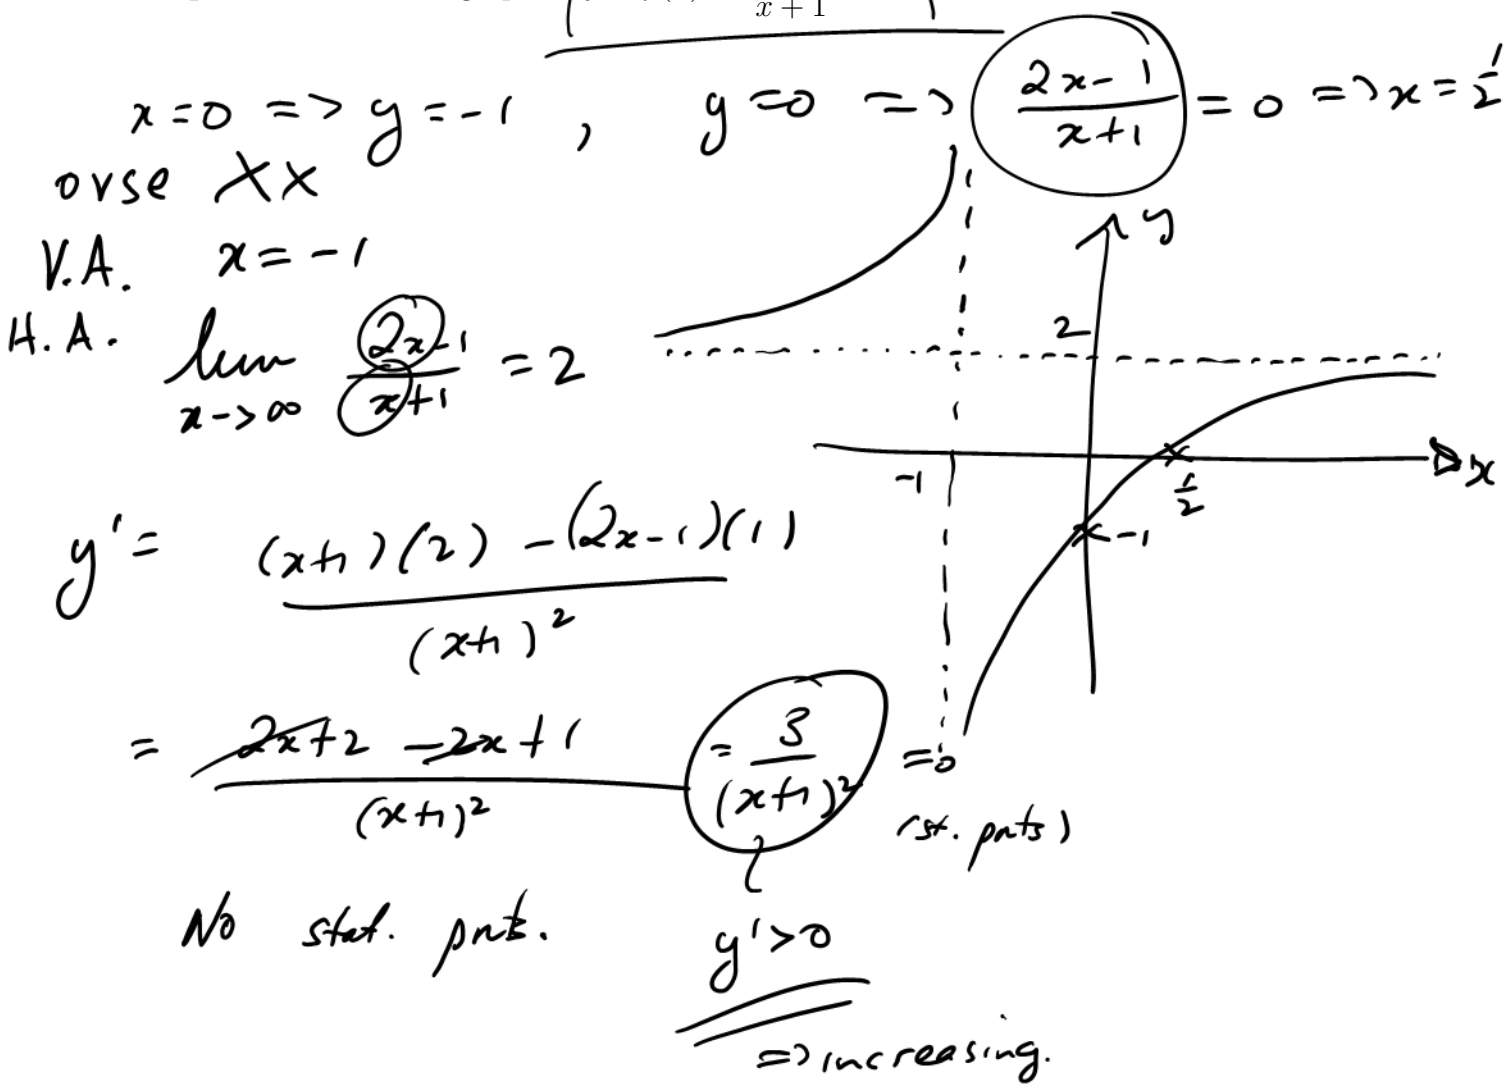 x + 1
x = 0 => y = -1 , y = 0 => (2x-1)/(x+1) = 0 => x = 1/2
ovse XX
V.A. x = -1
H.A. lim x->∞ (2x-1)/(x+1) = 2
y
2
-1
1/2
x
-1
y' = ((x+1)(2) - (2x-1)(1))/(x+1)²
= (2x+2 -2x+1)/(x+1)² = 3/(x+1)² = 0
(st. pnts)
No stat. pnts.
y' > 0
=> increasing.